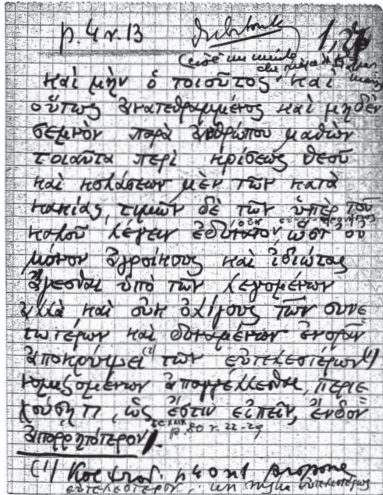 p. 4 r. 13
καὶ μὴν ὁ τοιοῦτος καὶ
οὕτως ἀνατεθραμμένος καὶ μηδὲν
σεμνὸν παρὰ ἀνθρώπου μαθὼν
τοιαῦτα περὶ κρίσεως θεοῦ
καὶ κολάσεων μὲν τῶν κατὰ
κακίας, τιμῶν δὲ τῶν ὑπὲρ τοῦ
καλοῦ λέγειν ἐδύνατο, ὥστ' οὐ
μόνον ἀγροίκους καὶ ἰδιώτας
ἄγεσθαι ὑπὸ τῶν λεγομένων
ἀλλὰ καὶ οὐκ ὀλίγους τῶν συνε
τωτέρων καὶ δυναμένων ἐνορᾶν
ἀποκρύψει τῶν εὐτελεστέρων (1)
νομιζομένων ἀπαγγέλλεσθαι, περιε
χούσῃ τι, ὡς ἔστιν εἰπεῖν, ἔνδον
ἀπορρητότερον.
p. 80 r. 22-29
(1) propone